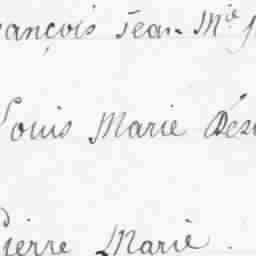 ançois Jean Mie
Louis Marie Dés
Pierre Marie.